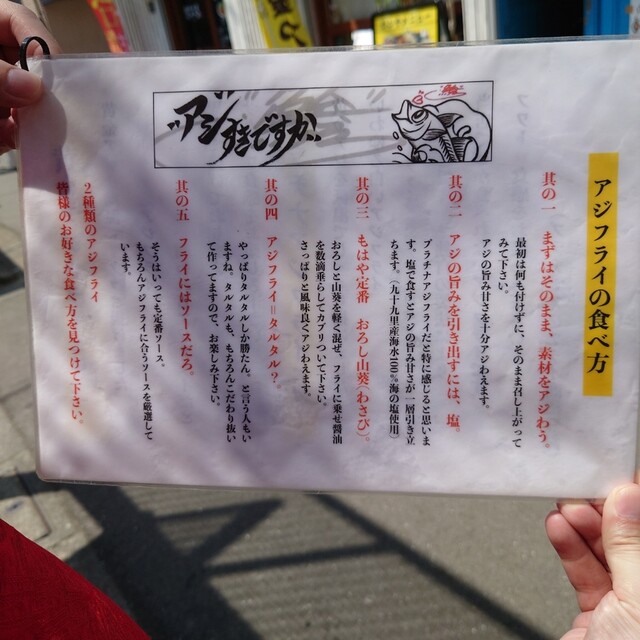 "アジ"すきですか。
アジフライの食べ方
其の一　まずはそのまま、素材をアジわう。
最初は何も付けずに、そのまま召し上がって
みて下さい。
アジの旨み甘さを十分アジわえます。
其の二　アジの旨みを引き出すには、塩。
プラチナアジフライだと特に感じると思いま
す。塩で食すとアジの旨み甘さが一層引き立
ちます。（九十九里産海水100％海の塩使用）
其の三　もはや定番　おろし山葵（わさび）。
おろしと山葵を軽く混ぜ、フライに乗せ醤油
を数滴垂らしてカブリついて下さい。
さっぱりと風味良くアジわえます。
其の四　アジフライ＝タルタル？
やっぱりタルタルしか勝たん。と言う人もい
ますね、タルタルも、もちろんこだわり抜い
て作ってますので、お楽しみ下さい。
其の五　フライにはソースだろ。
そうはいっても定番ソース。
もちろんアジフライに合うソースを厳選して
います。
2種類のアジフライ
皆様のお好きな食べ方を見つけて下さい。